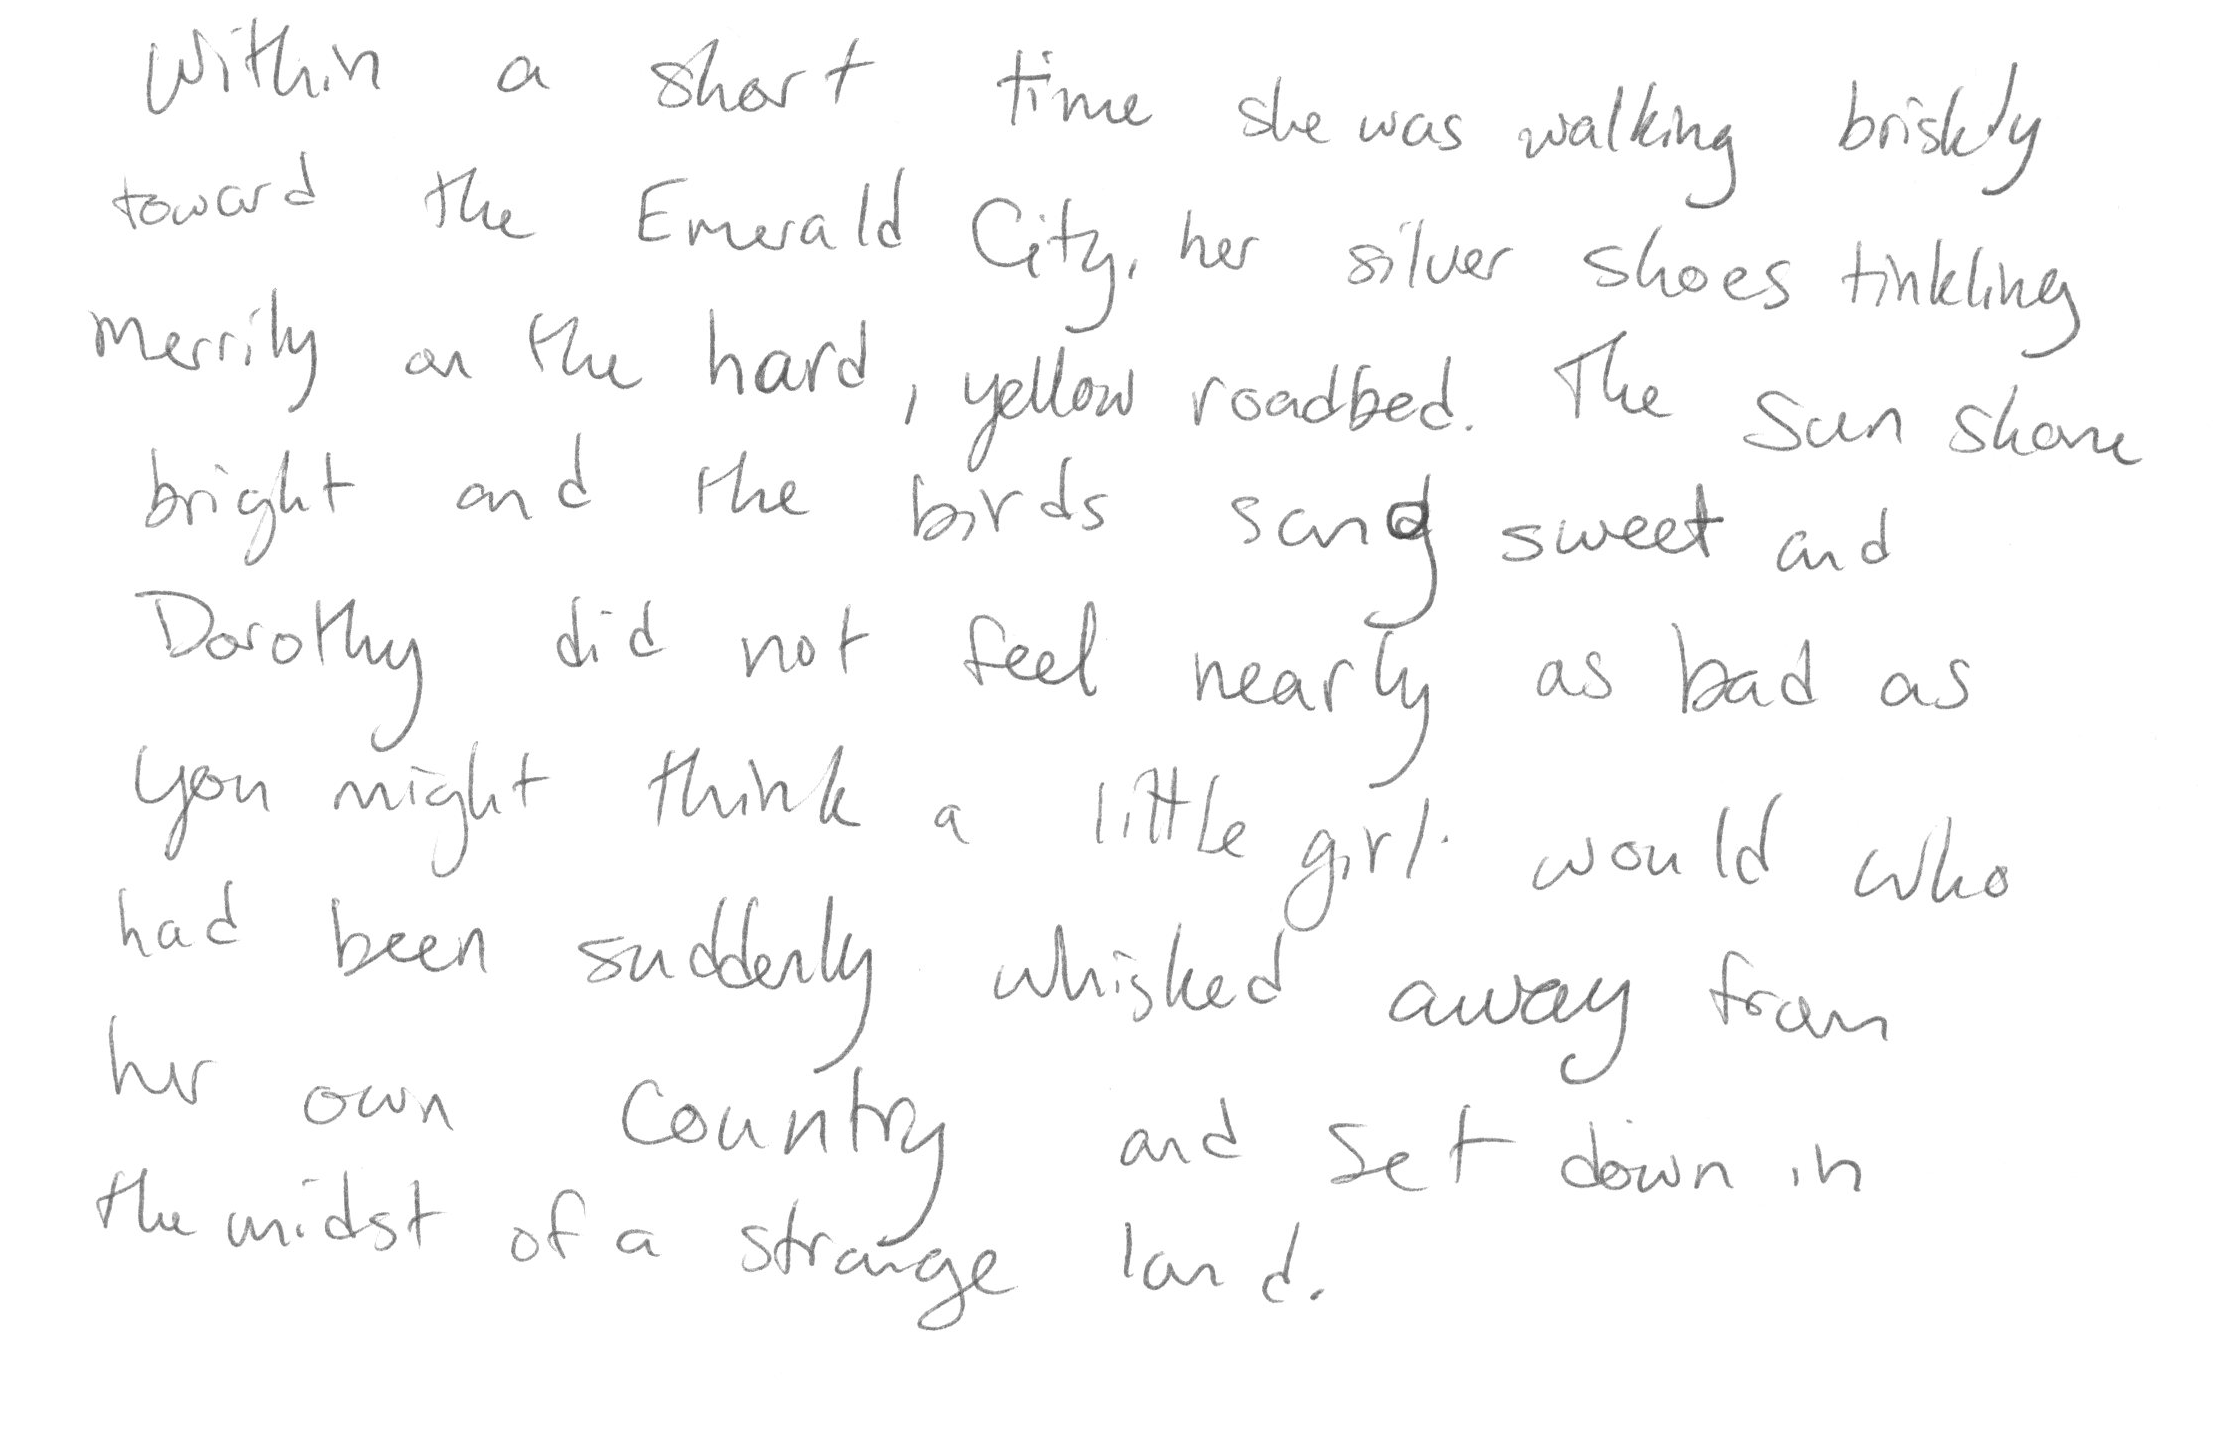 Within a short time she was walking briskly
toward the Emerald City, her silver shoes tinkling
merrily on the hard, yellow roadbed. The sun shone
bright and the birds sang sweet and
Dorothy did not feel nearly as bad as
you might think a little girl would who
had been suddenly whisked away from
her own country and set down in
the midst of a strange land.